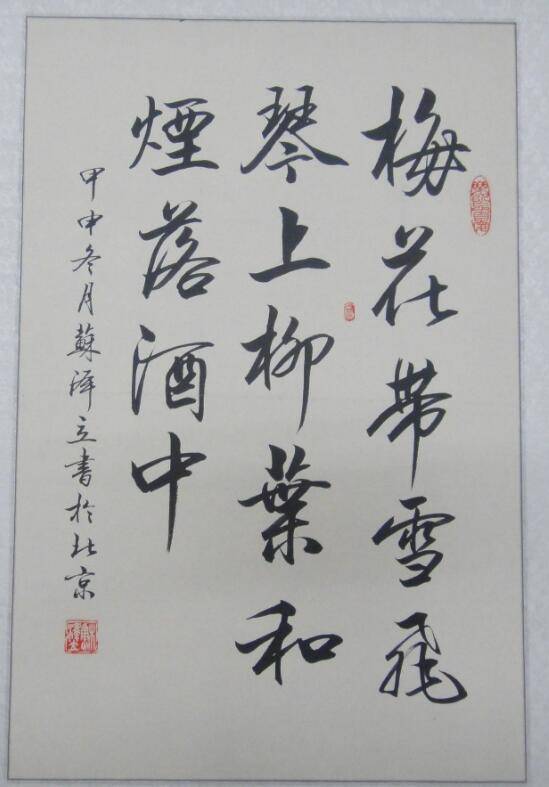 梅花带雪飛
琴上柳葉和
煙落酒中
甲申冬月蘇澤立書於北京